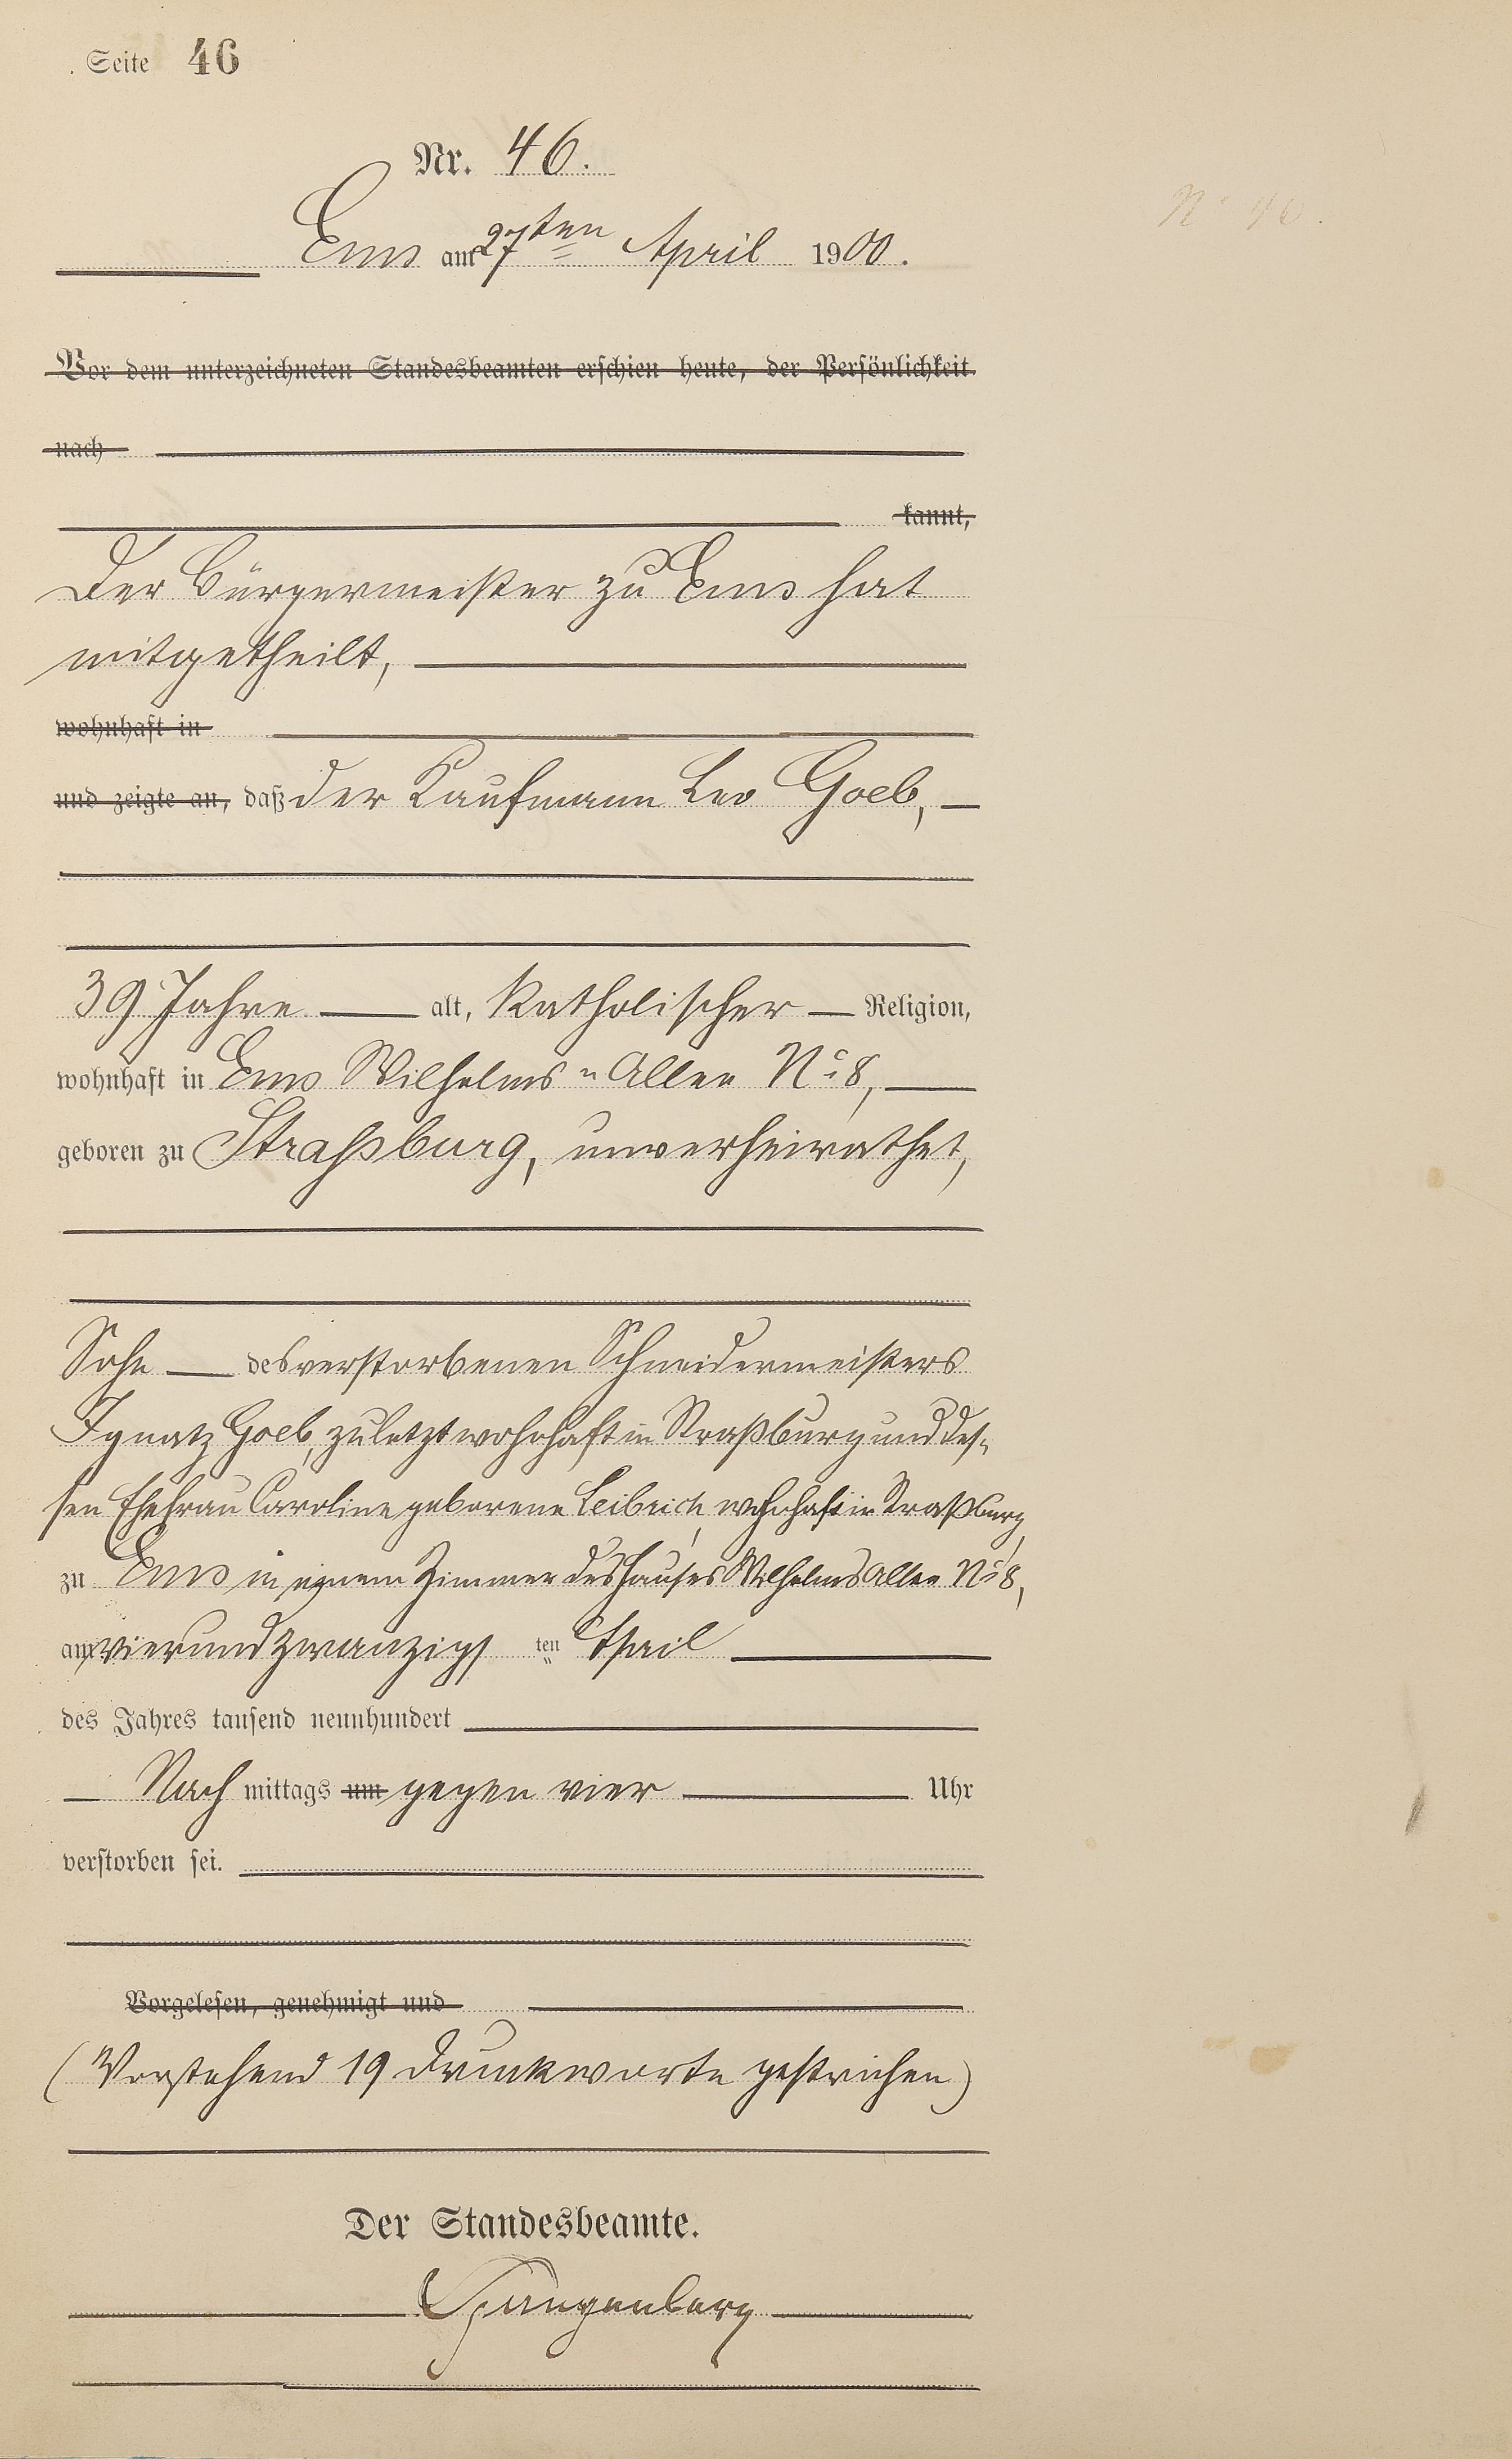 Seite 46
Nr. 46.
Ems am 27ten April 1900.
N° 46.
Vor dem unterzeichneten Standesbeamten erschien heute, der Persönlichkeit
nach
kannt,
Der Bürgermeister zu Ems hat
mitgetheilt,
wohnhaft in
und zeigte an, daß der Kaufmann Leo Goeb,
39 Jahre alt, katholischer Religion,
wohnhaft in Ems Wilhelms-Allee N° 8,
geboren zu Straßburg, unverheirathet,
Sohn des verstorbenen Schneidermeisters
Ignatz Goeb, zuletzt wohnhaft in Straßburg und des-
sen Ehefrau Caroline geborene Leibrich, wohnhaft in Straßburg,
zu Ems in einem Zimmer des Hauses Wilhelms Allee N° 8,
am vierundzwanzigsten April
des Jahres tausend neunhundert
Nachmittags um gegen vier Uhr
verstorben sei.
Vorgelesen, genehmigt und
(Vorstehend 19 Druckworte gestrichen)
Der Standesbeamte.
Spangenberg